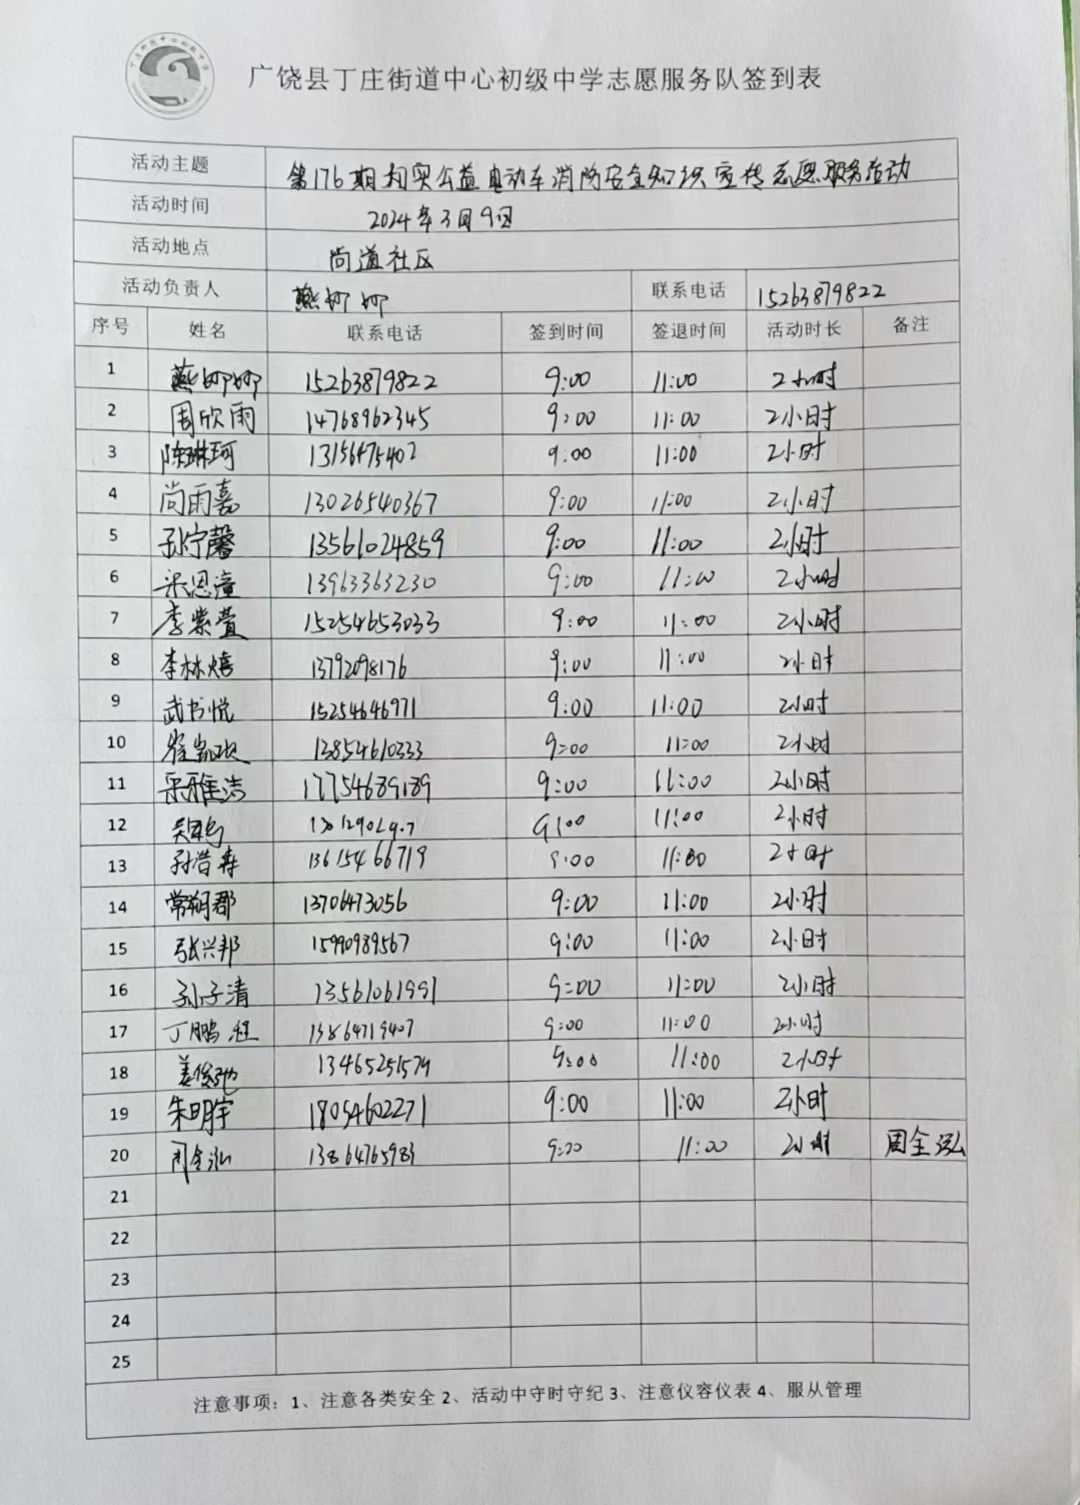 广饶县丁庄街道中心初级中学志愿服务队签到表
活动主题 第176期利实公益电动车消防安全知识宣传志愿服务活动
活动时间 2024年3月9日
活动地点 尚道社区
活动负责人 燕娜娜 联系电话 15263879822
序号 姓名 联系电话 签到时间 签退时间 活动时长 备注
1 燕娜娜 15263879822 9:00 11:00 2小时
2 周欣雨 14768962345 9:00 11:00 2小时
3 陈琳珂 13156475402 9:00 11:00 2小时
4 尚雨嘉 13026540367 9:00 11:00 2小时
5 孙宁馨 13561024859 9:00 11:00 2小时
6 梁恩潼 13963363230 9:00 11:00 2小时
7 李紫萱 15254653033 9:00 11:00 2小时
8 李林嬉 13792098176 9:00 11:00 2小时
9 武书悦 15254646971 9:00 11:00 2小时
10 崔凯欣 13854610333 9:00 11:00 2小时
11 梁雅洁 17754689189 9:00 11:00 2小时
12 9:00 11:00 2小时
13 孙浩森 13615466719 9:00 11:00 2小时
14 常朔郡 13706473056 9:00 11:00 2小时
15 张兴邦 15990989567 9:00 11:00 2小时
16 孙子清 13561061991 9:00 11:00 2小时
17 丁鹏程 13864719407 9:00 11:00 2小时
18 姜俊弛 13465251579 9:00 11:00 2小时
19 朱明宇 18054602271 9:00 11:00 2小时
20 周全泓 13864765983 9:00 11:00 2小时 周全泓
21
22
23
24
25
注意事项：1、注意各类安全 2、活动中守时守纪 3、注意仪容仪表 4、服从管理